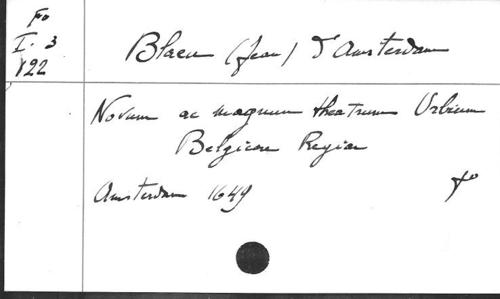 Fo
I. 3
122
Blaeu (Jean) d'Amsterdam
Novum ac magnum theatrum Urbium
Belgicae Regiae
Amsterdam 1649
fo